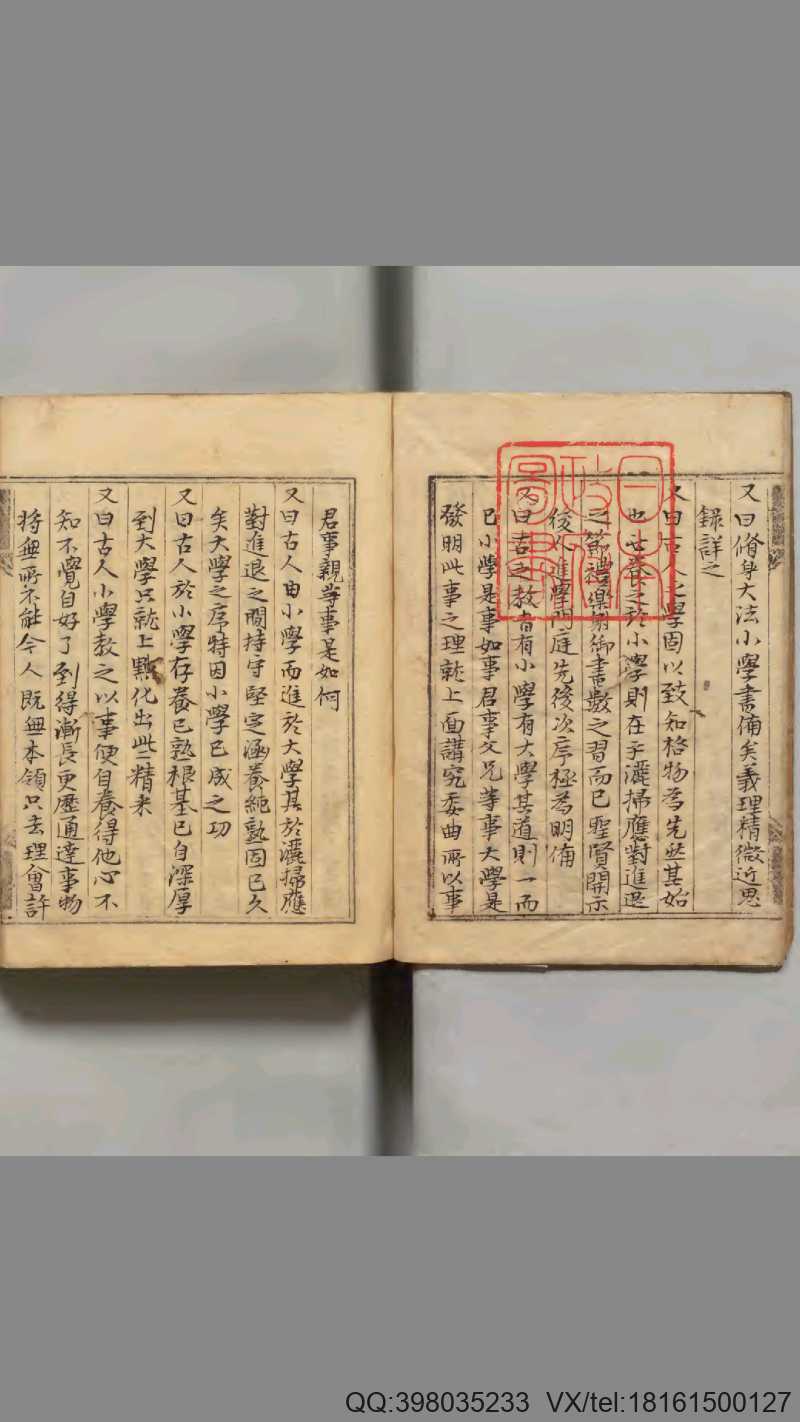 又曰脩身大法小學書備矣義理精微近思
錄詳之
又曰古人之學固以致知格物為先然其始
也必養之於小學則在乎灑掃應對進退
之節禮樂射御書數之習而已聖賢開示
後人進學門庭先後次序極為明備
又曰古之教者有小學有大學其道則一而
已小學是事如事君事父兄等事大學是
發明此事之理就上面講究委曲所以事
君事親等事是如何
又曰古人由小學而進於大學其於灑掃應
對進退之間持守堅定涵養純熟固已久
矣大學之序特因小學已成之功
又曰古人於小學存養已熟根基已自深厚
到大學只就上點化出些精来
又曰古人小學教之以事便自養得他心不
知不覺自好了到得漸長更歷通達事物
將無所不能今人既無本領只去理會許
QQ:398035233 VX/tel:18161500127